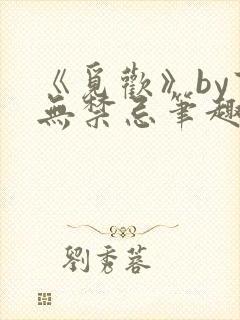 《覓歡》by
無禁忌筆趣
劉秀蓉